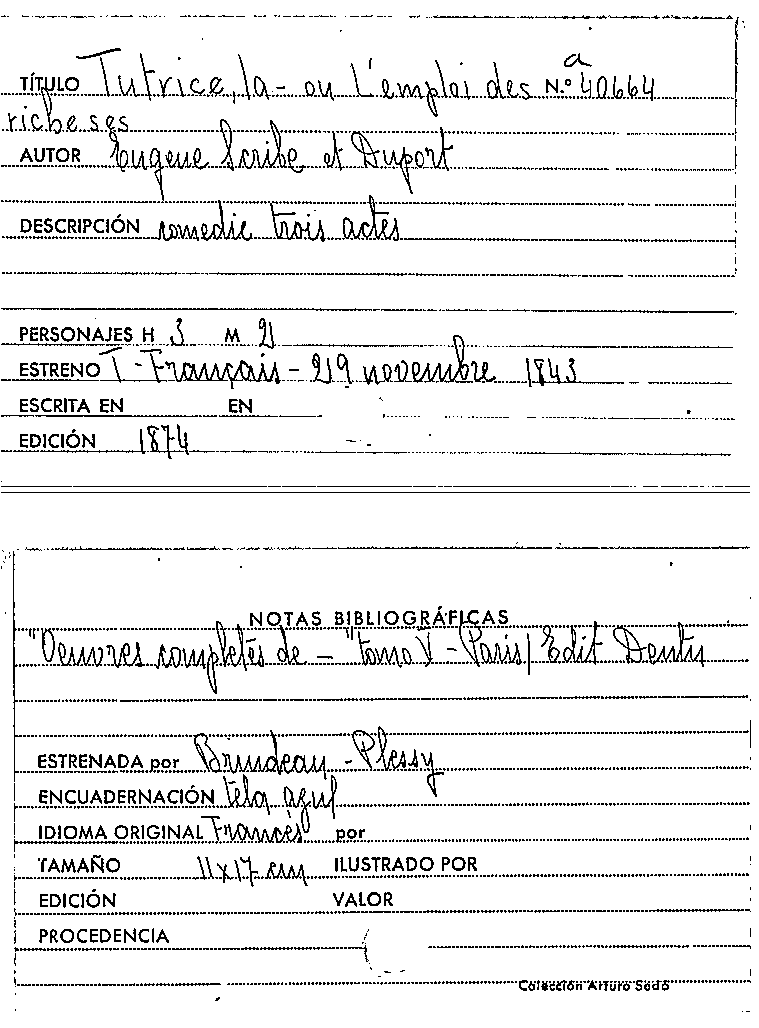 a
TÍTULO Tutrice, la - ou L'emploi des N.º 40664
richesses
AUTOR Eugene Scribe et Duport
DESCRIPCIÓN comedie trois actes
PERSONAJES H 3 M 2
ESTRENO T - Français - 29 novembre 1843
ESCRITA EN EN
EDICIÓN 1874
NOTAS BIBLIOGRÁFICAS
"Oeuvres completés de - " tomo V - Paris / Edit Dentu
ESTRENADA por Brindeau - Plessy
ENCUADERNACIÓN tela azul
IDIOMA ORIGINAL Francés por
TAMAÑO 11x17 cm ILUSTRADO POR
EDICIÓN VALOR
PROCEDENCIA
Colección Arturo Sedó